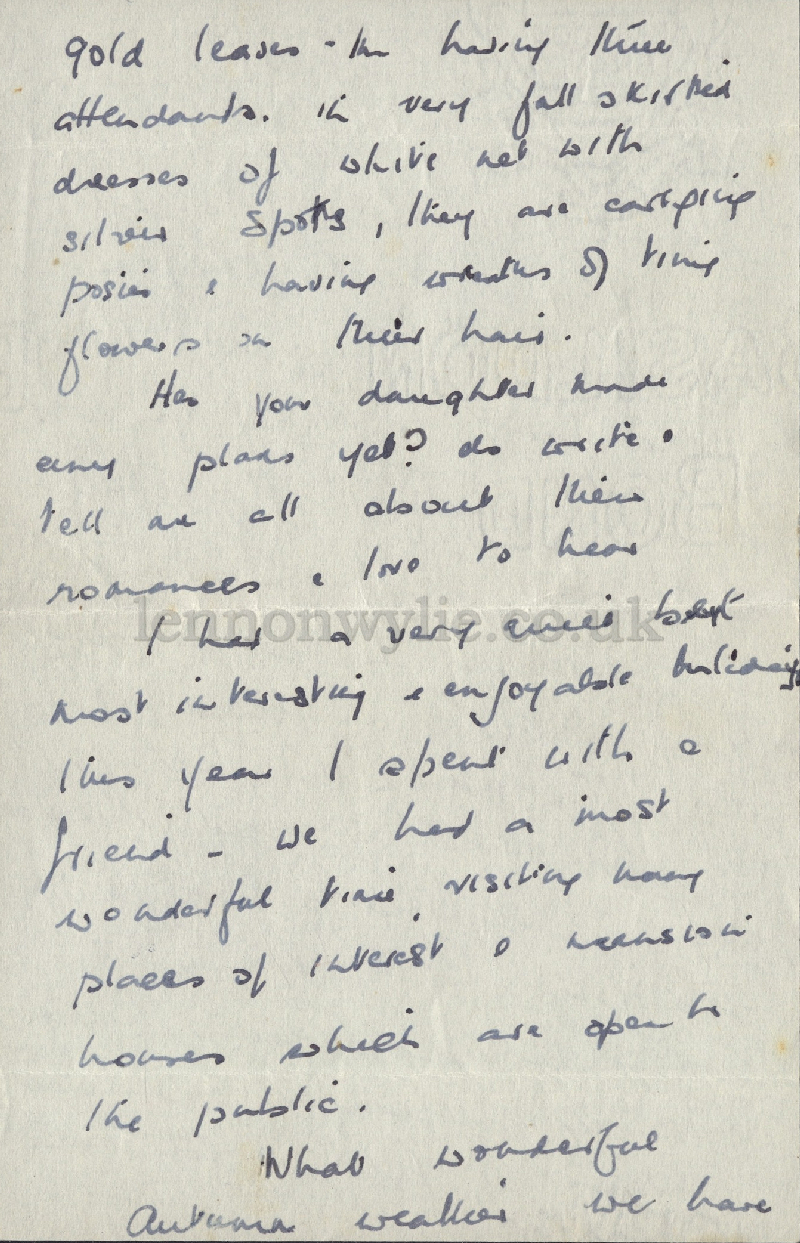 gold leaves - Im having three
attendants. in very full skirted
dresses of white net with
silver spots, they are carrying
posies & having wreaths of tiny
flowers in their hair.
Has your daughter made
any plans yet? do write &
tell me all about their
romances, I love to hear
lennonwylie.co.uk
I had a very quiet but
most interesting & enjoyable holiday
this year I spent with a
friend - we had a most
wonderful time, visiting many
places of interest & mansion
houses which are open to
the public.
What wonderful
Autumn weather we have